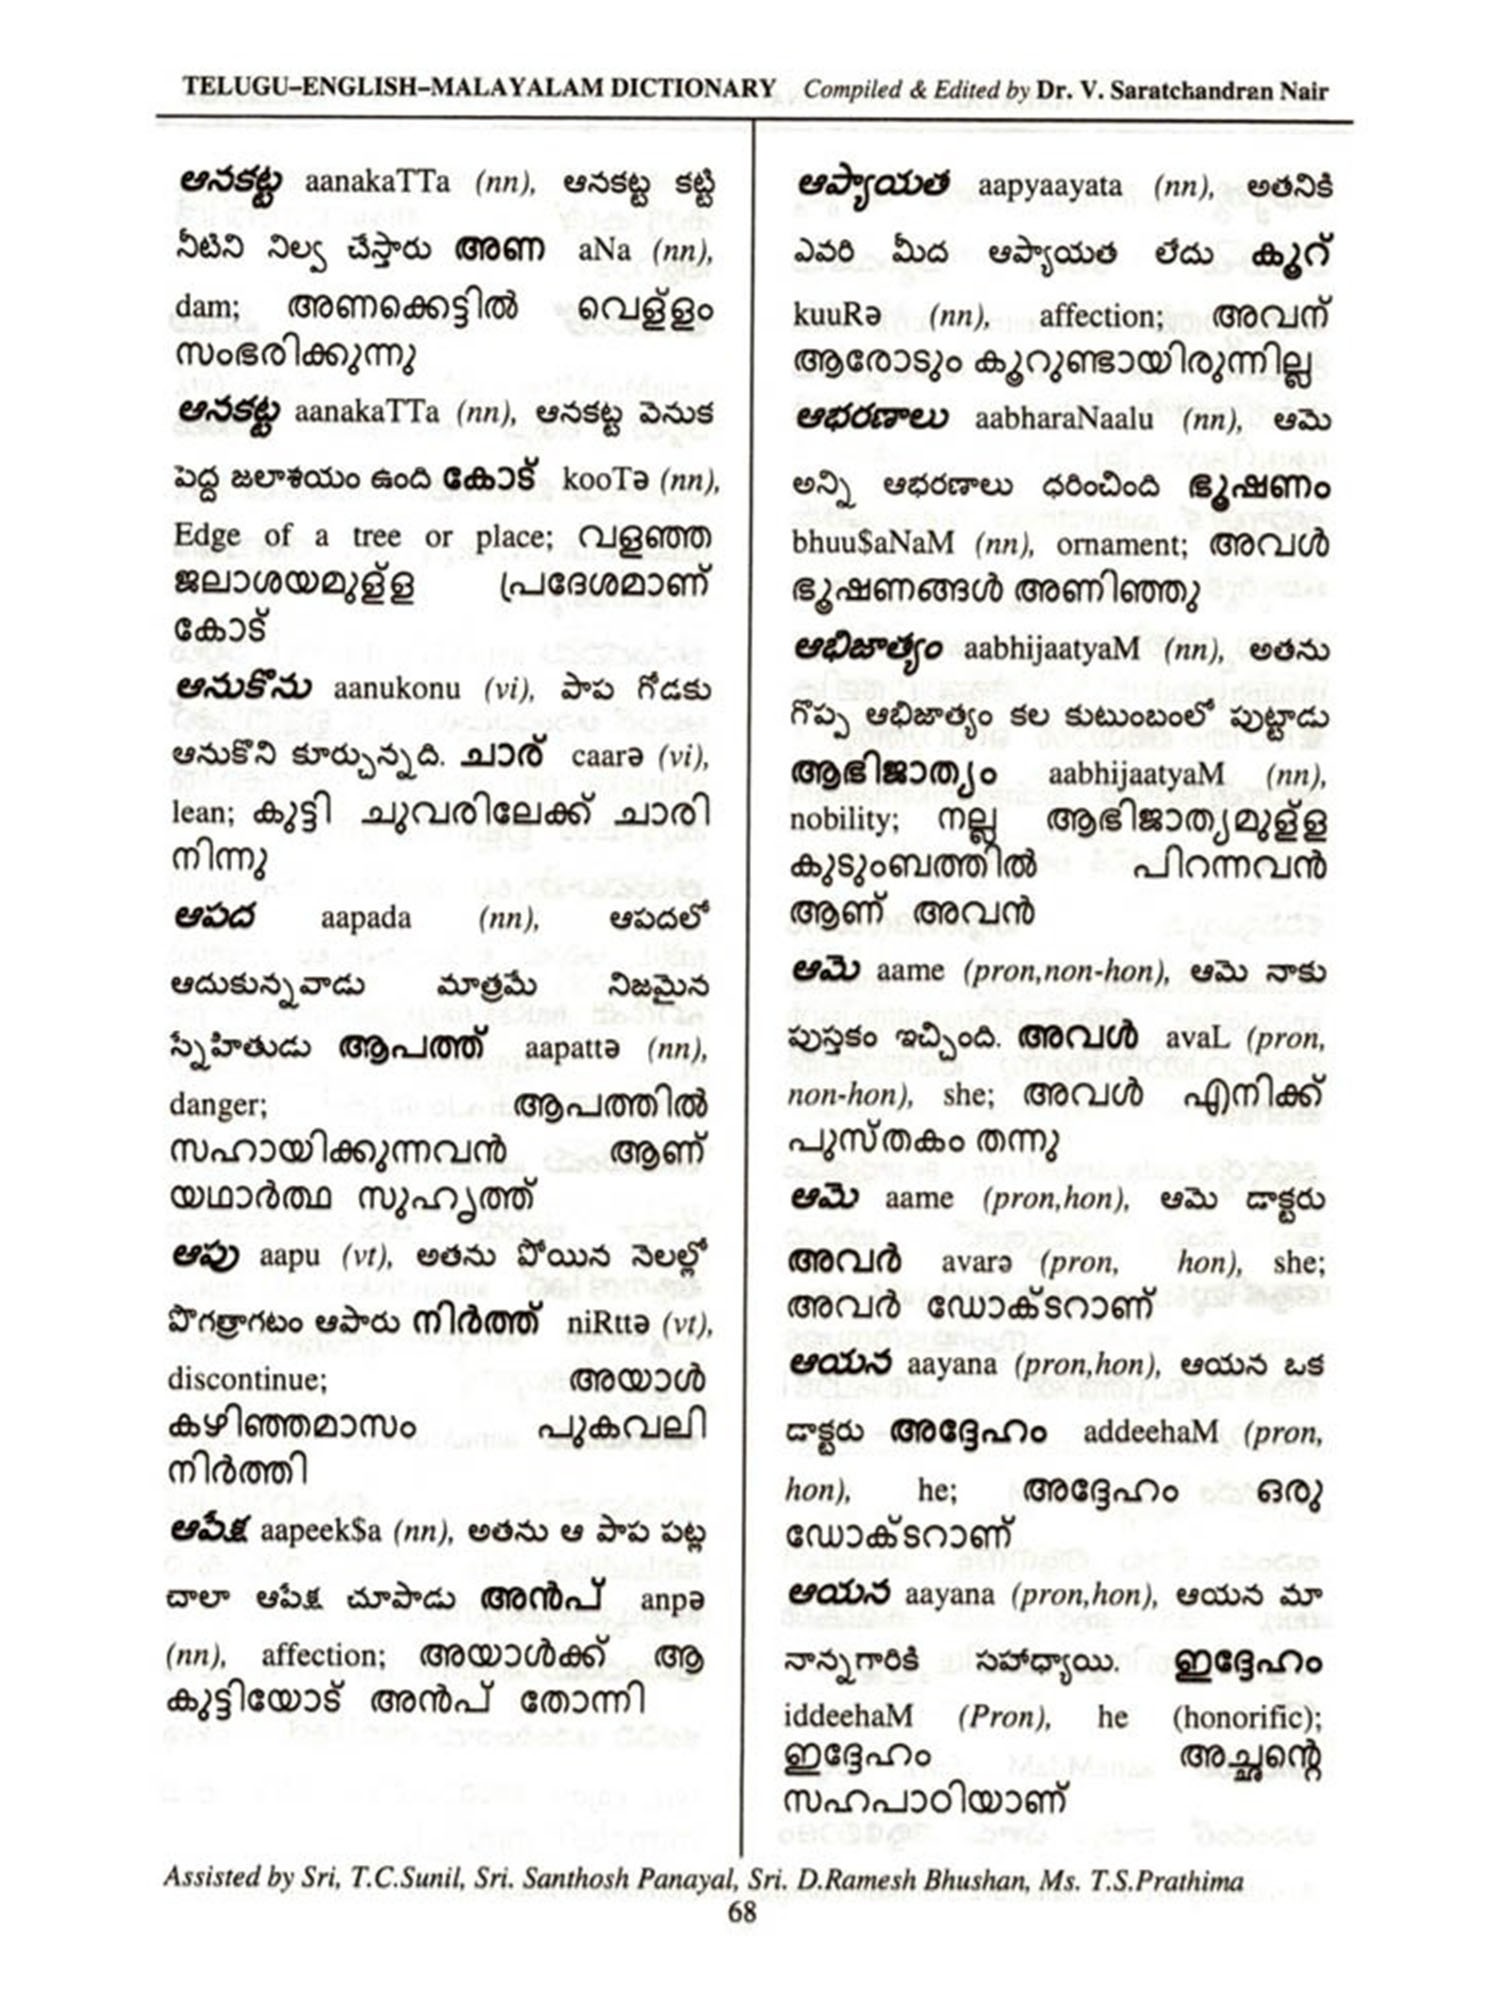 TELUGU–ENGLISH–MALAYALAM DICTIONARY Compiled & Edited by Dr. V. Saratchandran Nair
ఆనకట్ట aanakaTTa (nn), ఆనకట్ట కట్టి
నీటిని నిల్వ చేస్తారు അണ aNa (nn),
dam; അണക്കെട്ടിൽ വെള്ളം
സംഭരിക്കുന്നു
ఆనకట్ట aanakaTTa (nn), ఆనకట్ట వెనుక
పెద్ద జలాశయం ఉంది കോട് kooTə (nn),
Edge of a tree or place; വളഞ്ഞ
ജലാശയമുള്ള പ്രദേശമാണ്
കോട്
ఆనుకొను aanukonu (vi), పాప గోడకు
ఆనుకొని కూర్చున్నది. ചാര് caarə (vi),
lean; കുട്ടി ചുവരിലേക്ക് ചാരി
നിന്നു
ఆపద aapada (nn), ఆపదలో
ఆదుకున్నవాడు మాత్రమే నిజమైన
స్నేహితుడు ആപത്ത് aapattə (nn),
danger; ആപത്തിൽ
സഹായിക്കുന്നവൻ ആണ്
യഥാർത്ഥ സുഹൃത്ത്
ఆపు aapu (vt), అతను పోయిన నెలల్లో
పొగత్రాగటం ఆపారు നിർത്ത് niRttə (vt),
discontinue; അയാൾ
കഴിഞ്ഞമാസം പുകവലി
നിർത്തി
ఆపేక్ష aapeek$a (nn), అతను ఆ పాప పట్ల
చాలా ఆపేక్ష చూపాడు അൻപ് anpə
(nn), affection; അയാൾക്ക് ആ
കുട്ടിയോട് അൻപ് തോന്നി
ఆప్యాయత aapyaayata (nn), అతనికి
ఎవరి మీద ఆప్యాయత లేదు കൂറ്
kuuRə (nn), affection; അവന്
ആരോടും കൂറുണ്ടായിരുന്നില്ല
ఆభరణాలు aabharaNaalu (nn), ఆమె
అన్ని ఆభరణాలు ధరించింది ഭൂഷണം
bhuu$aNaM (nn), ornament; അവൾ
ഭൂഷണങ്ങൾ അണിഞ്ഞു
ఆభిజాత్యం aabhijaatyaM (nn), అతను
గొప్ప ఆభిజాత్యం కల కుటుంబంలో పుట్టాడు
ആഭിജാത്യം aabhijaatyaM (nn),
nobility; നല്ല ആഭിജാത്യമുള്ള
കുടുംബത്തിൽ പിറന്നവൻ
ആണ് അവൻ
ఆమె aame (pron,non-hon), ఆమె నాకు
పుస్తకం ఇచ్చింది. അവൾ avaL (pron,
non-hon), she; അവൾ എനിക്ക്
പുസ്തകം തന്നു
ఆమె aame (pron,hon), ఆమె డాక్టరు
അവർ avarə (pron, hon), she;
അവർ ഡോക്ടറാണ്
ఆయన aayana (pron,hon), ఆయన ఒక
డాక్టరు അദ്ദേഹം addeehaM (pron,
hon), he; അദ്ദേഹം ഒരു
ഡോക്ടറാണ്
ఆయన aayana (pron,hon), ఆయన మా
నాన్నగారికి సహాధ్యాయి. ഇദ്ദേഹം
iddeehaM (Pron), he (honorific);
ഇദ്ദേഹം അച്ഛന്റെ
സഹപാഠിയാണ്
Assisted by Sri, T.C.Sunil, Sri. Santhosh Panayal, Sri. D.Ramesh Bhushan, Ms. T.S.Prathima
68